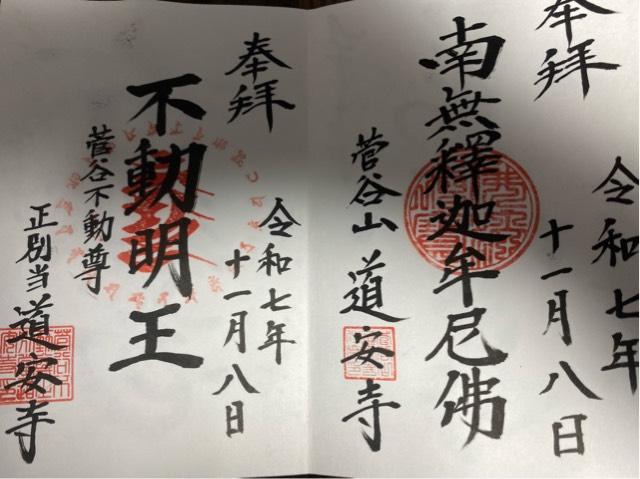 奉拝
令和七年
十一月八日
南無釋迦牟尼佛
菅谷山
道安寺
奉拝
令和七年
十一月八日
不動明王
菅谷不動尊
正別当
道安寺